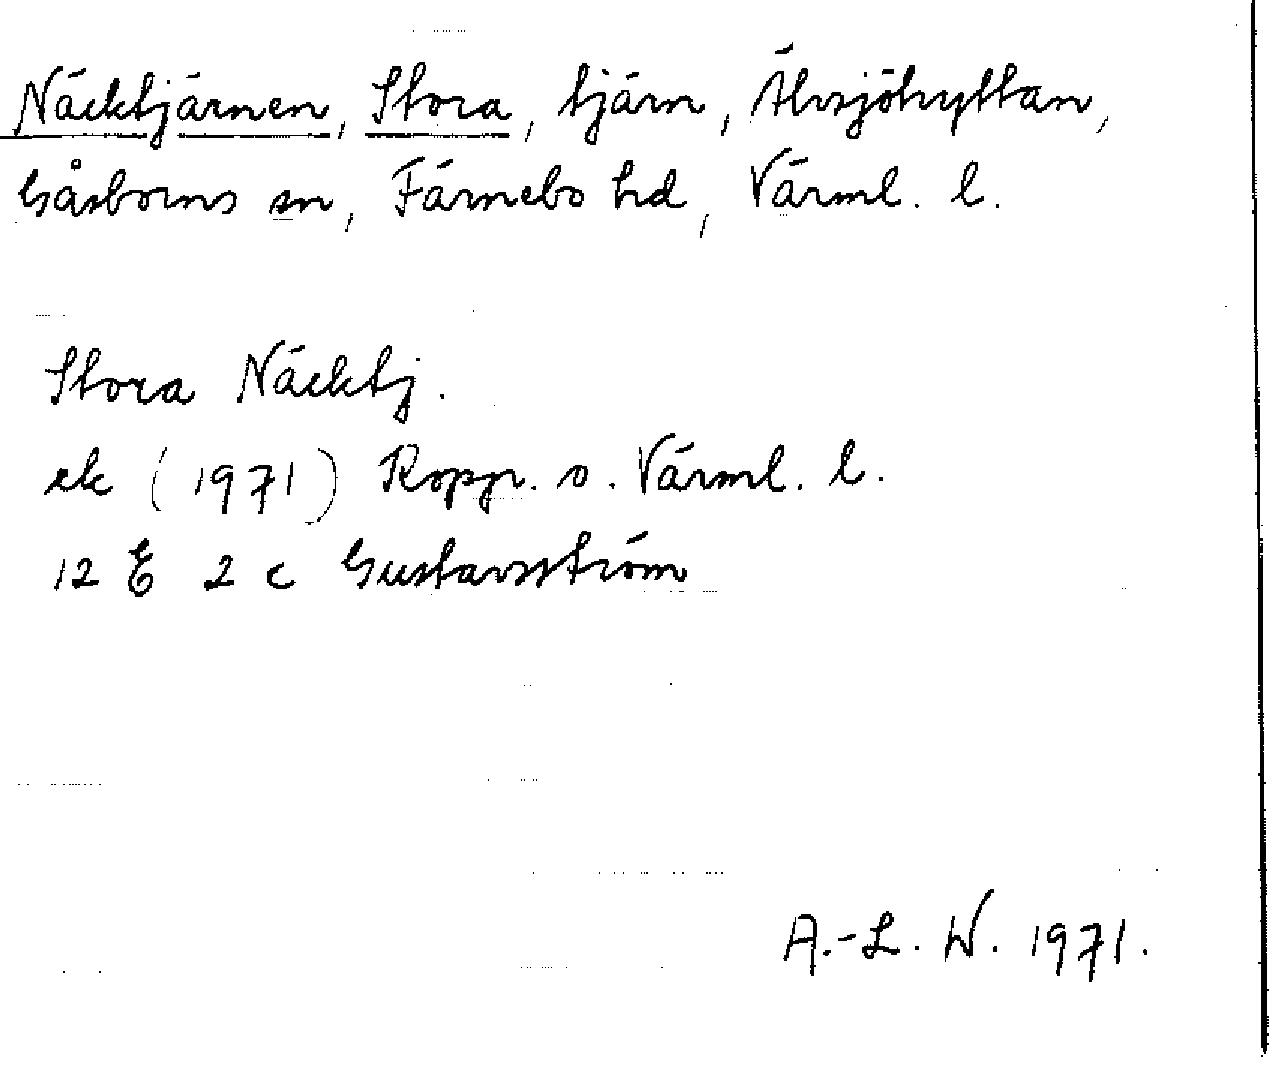 Näcktjärnen, Stora, tjärn, Älvsjöhyttan,
Gåsborns sn, Färnebo hd, Värml. l.
Stora Näcktj.
ek (1971) Ropgr. o. Värml. l.
12 E 2 c Gustavsström
A.-L. W. 1971.